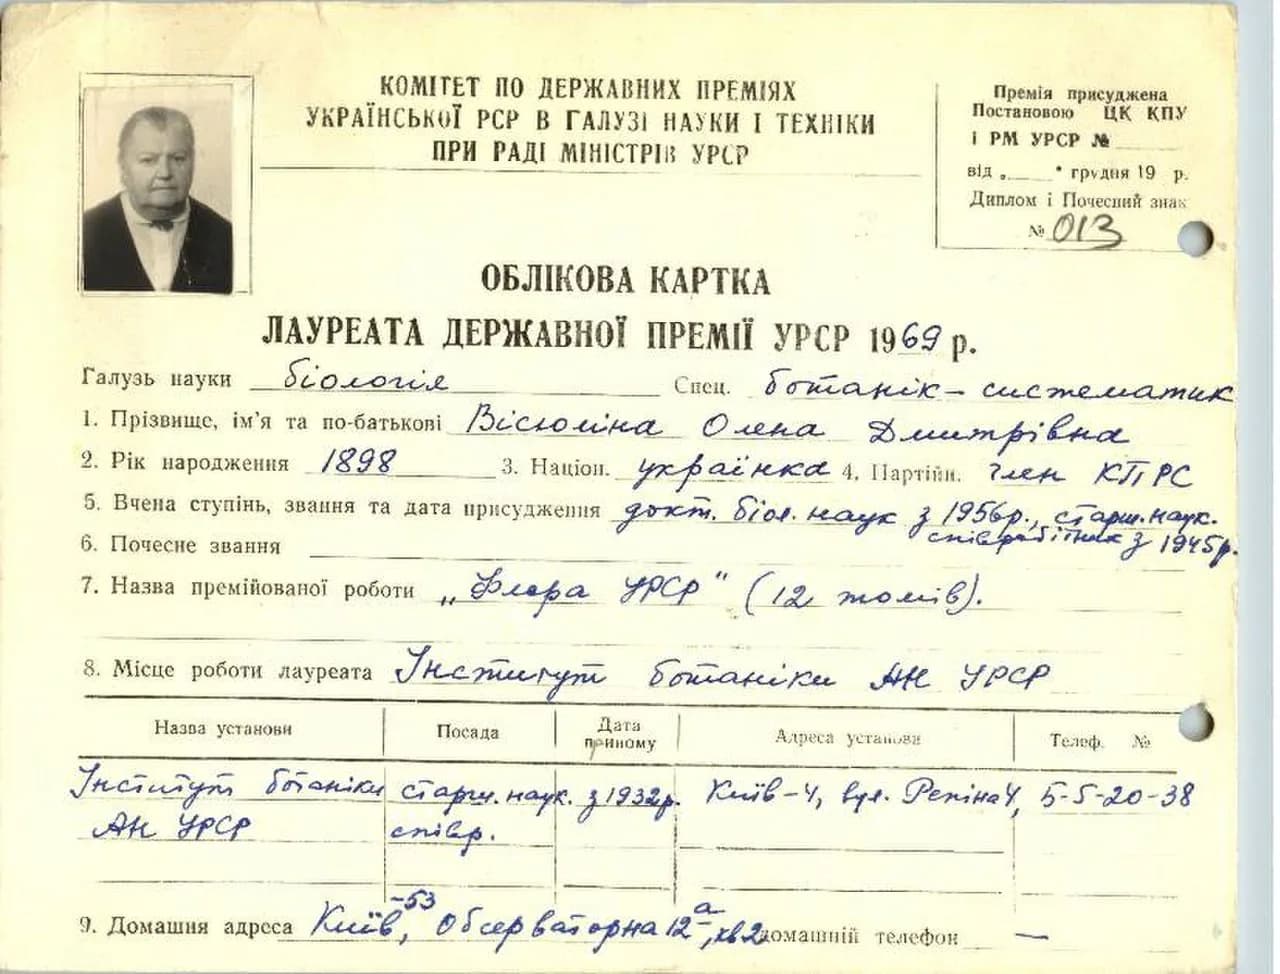 КОМІТЕТ ПО ДЕРЖАВНИХ ПРЕМІЯХ
УКРАЇНСЬКОЇ РСР В ГАЛУЗІ НАУКИ І ТЕХНІКИ
ПРИ РАДІ МІНІСТРІВ УРСР
Премія присуджена
Постановою ЦК КПУ
і РМ УРСР №
від „ " грудня 19 р.
Диплом і Почесний знак
№ 013
ОБЛІКОВА КАРТКА
ЛАУРЕАТА ДЕРЖАВНОЇ ПРЕМІЇ УРСР 1969 р.
Галузь науки біологія Спец. ботанік-систематик
1. Прізвище, ім'я та по-батькові Вісюліна Олена Дмитрівна
2. Рік народження 1898 3. Націон. українка 4. Партійн. член КПРС
5. Вчена ступінь, звання та дата присудження докт. біол. наук з 1956р., старш. наук.
співробітник з 1945р.
6. Почесне звання
7. Назва премійованої роботи „Флора УРСР" (12 томів).
8. Місце роботи лауреата Інститут ботаніки АН УРСР
Назва установи Посада Дата прийому Адреса установи Телеф. №
Інститут ботаніки старш. наук. з 1932р. Київ-4, вул. Репіна 4, 5-5-20-38
АН УРСР співр.
9. Домашня адреса Київ-53, Обсерваторна 12а, кв 2 домашній телефон —